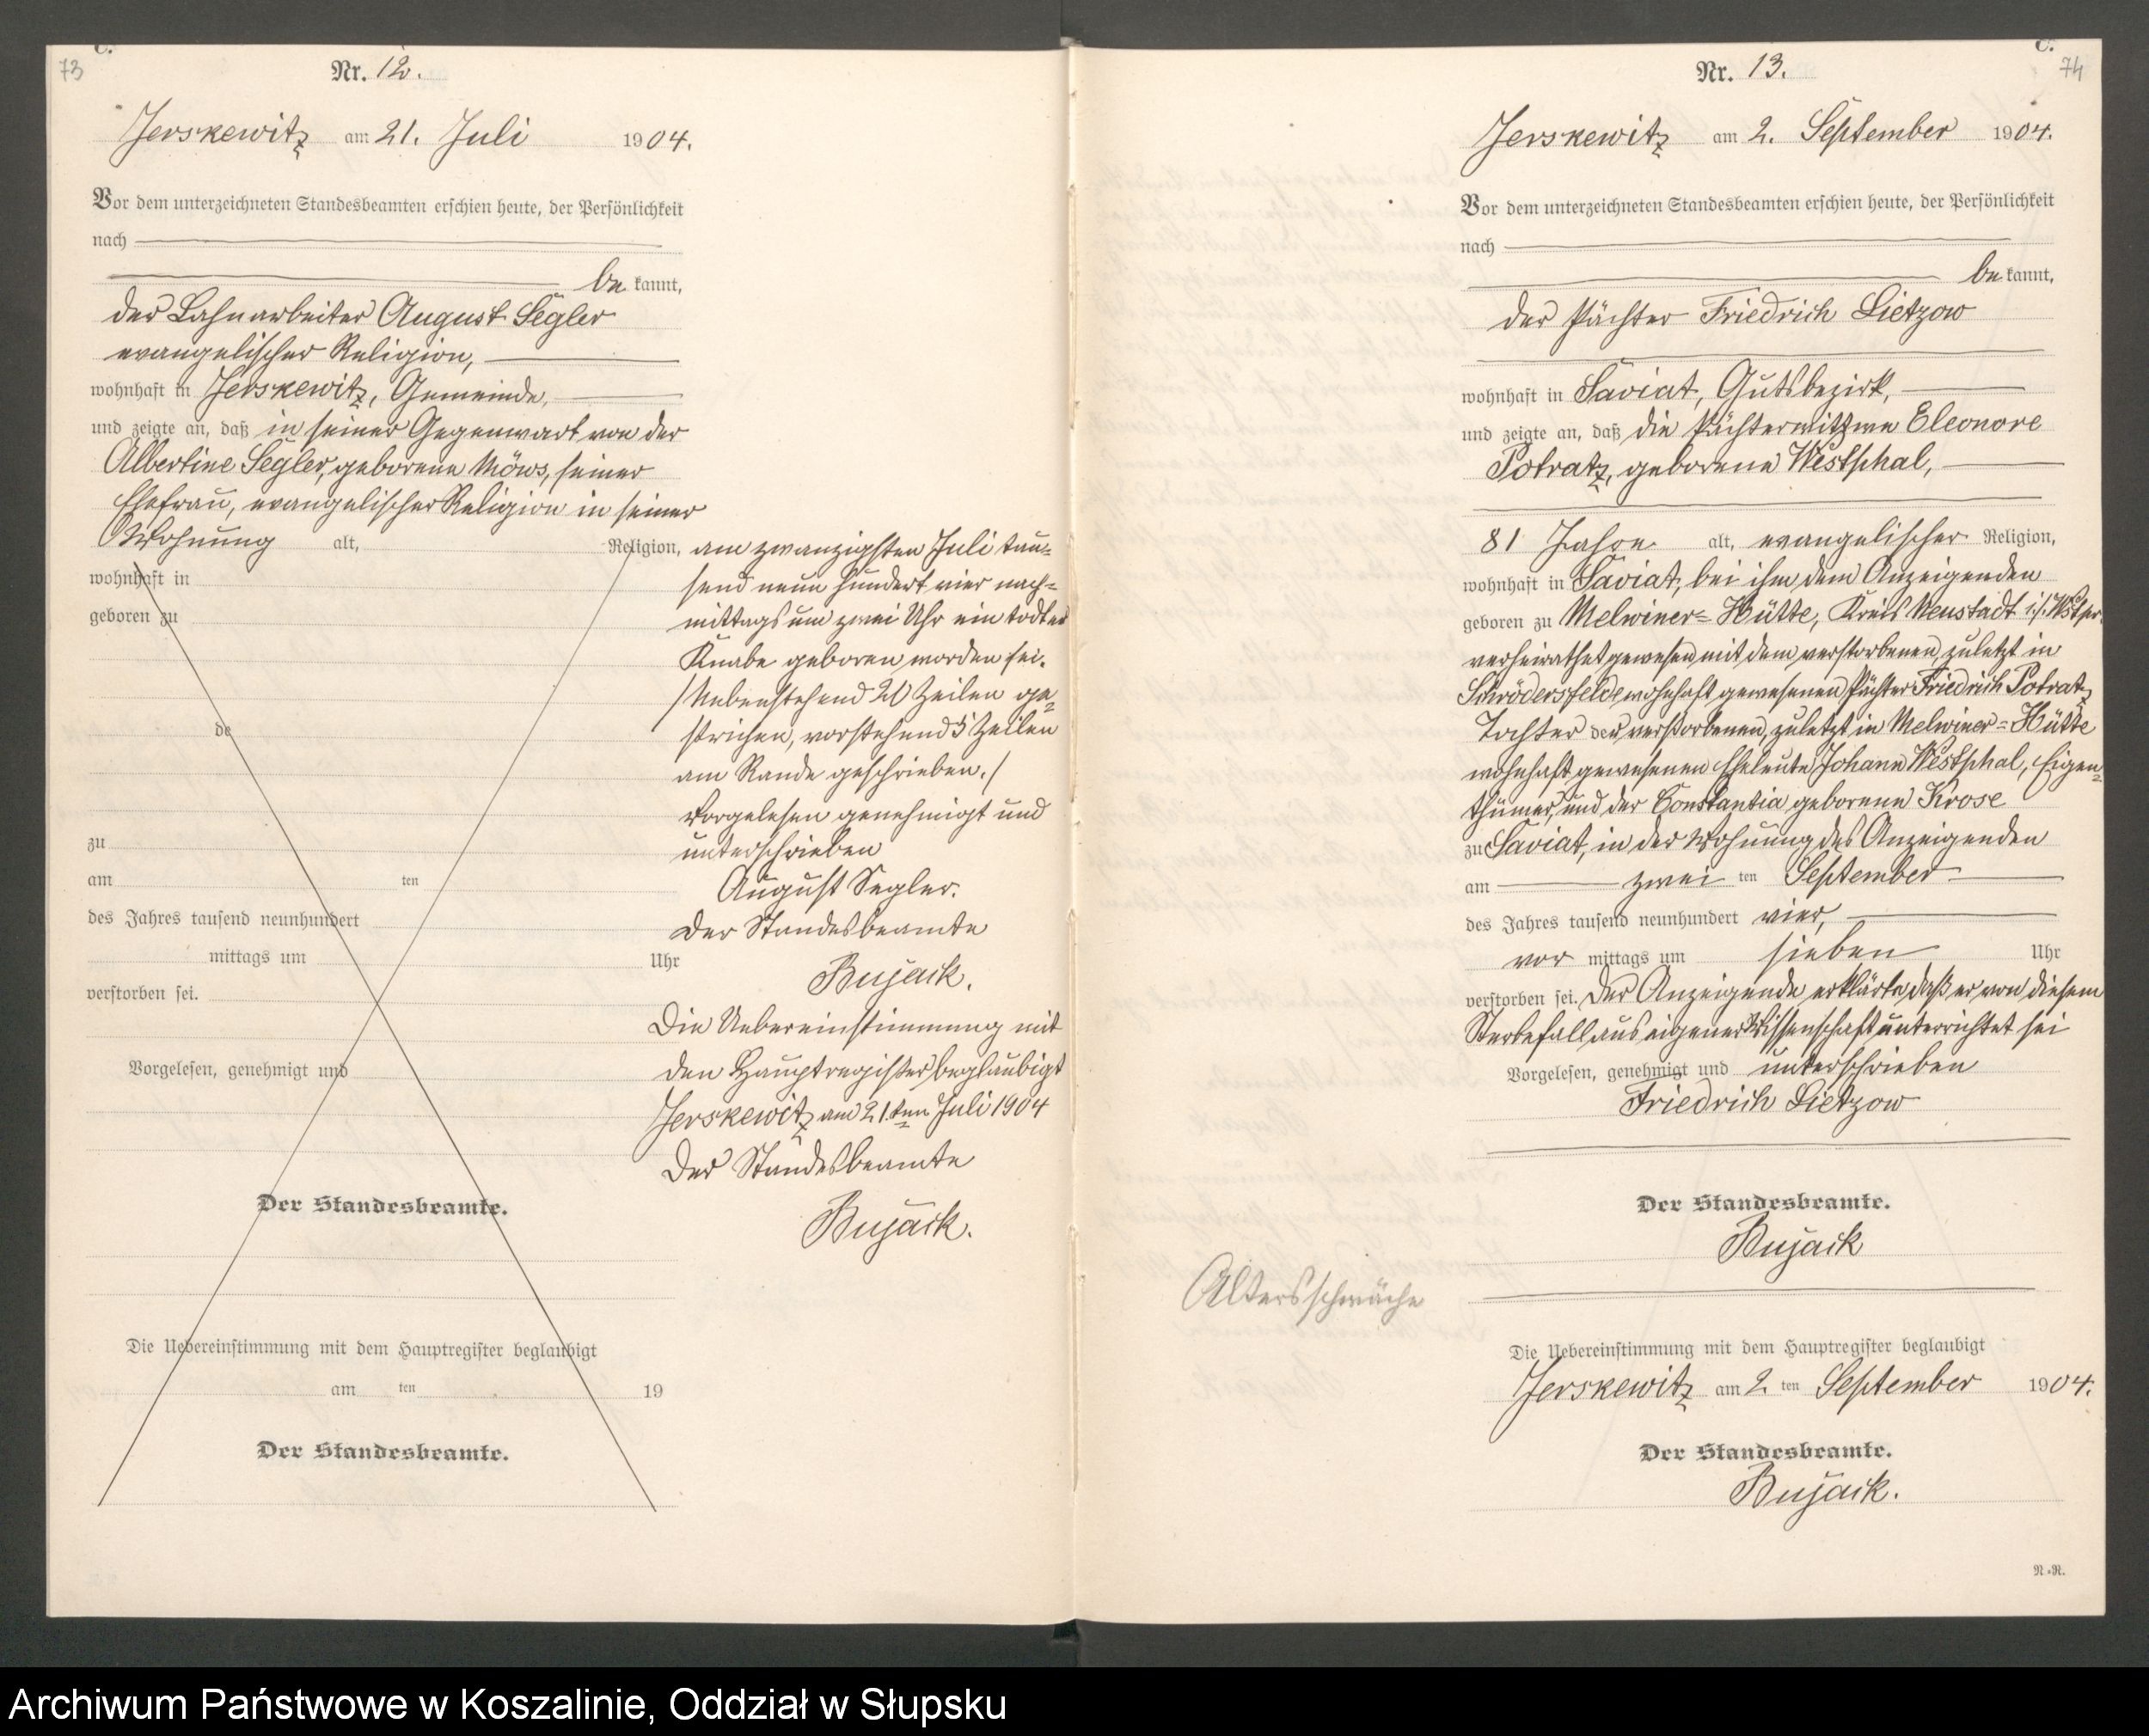 73
C.
Nr. 12.
Jerskewitz am 21. Juli 1904.
Vor dem unterzeichneten Standesbeamten erschien heute, der Persönlichkeit
nach
be kannt,
der Lohnarbeiter August Segler
evangelischer Religion,
wohnhaft in Jerskewitz, Gemeinde,
und zeigte an, daß in seiner Gegenwart von der
Albertine Segler, geborene Möws, seiner
Ehefrau, evangelischer Religion in seiner
Wohnung alt, Religion,
wohnhaft in
geboren zu
de
zu
am ten
des Jahres tausend neunhundert
mittags um Uhr
verstorben sei.
Vorgelesen, genehmigt und
Der Standesbeamte.
Die Uebereinstimmung mit dem Hauptregister beglaubigt
am ten 19
Der Standesbeamte.
am zwanzigsten Juli tau=
send neun hundert vier nach=
mittags um zwei Uhr ein todter
Knabe geboren worden sei.
/Nebenstehend 20 Zeilen ge=
strichen, vorstehend 5 Zeilen
am Rande geschrieben./
Vorgelesen genehmigt und
unterschrieben
August Segler.
Der Standesbeamte
Bujack.
Die Uebereinstimmung mit
den Hauptregister beglaubigt
Jerskewitz am 21.ten Juli 1904
Der Standesbeamte
Bujack.
C.
74
Nr. 13.
Jerskewitz am 2. September 1904.
Vor dem unterzeichneten Standesbeamten erschien heute, der Persönlichkeit
nach
be kannt,
der Pächter Friedrich Lietzow
wohnhaft in Saviat, Gutsbezirk,
und zeigte an, daß die Pächterwittwe Eleonore
Potratz, geborene Westphal,
81 Jahre alt, evangelischer Religion,
wohnhaft in Saviat, bei ihm dem Anzeigenden
geboren zu Melwiner=Hütte, Kreis Neustadt i/. Wstpr.
verheirathet gewesen mit dem verstorbenen, zuletzt in
Schrödersfelde wohnhaft gewesenen Pächter Friedrich Potratz
Tochter der verstorbenen, zuletzt in Melwiner=Hütte
wohnhaft gewesenen Eheleute Johann Westphal, Eigen=
thümer, und der Constantia geborene Krose
zu Saviat, in der Wohnung des Anzeigenden
am zwei ten September
des Jahres tausend neunhundert vier,
vor mittags um sieben Uhr
verstorben sei. Der Anzeigende erklärte daß er von diesem
Sterbefall aus eigener Wissenschaft unterrichtet sei
Vorgelesen, genehmigt und unterschrieben
Friedrich Lietzow
Der Standesbeamte.
Bujack
Altersschwäche
Die Uebereinstimmung mit dem Hauptregister beglaubigt
Jerskewitz am 2. ten September 1904.
Der Standesbeamte.
Bujack.
N.-R.
Archiwum Państwowe w Koszalinie, Oddział w Słupsku